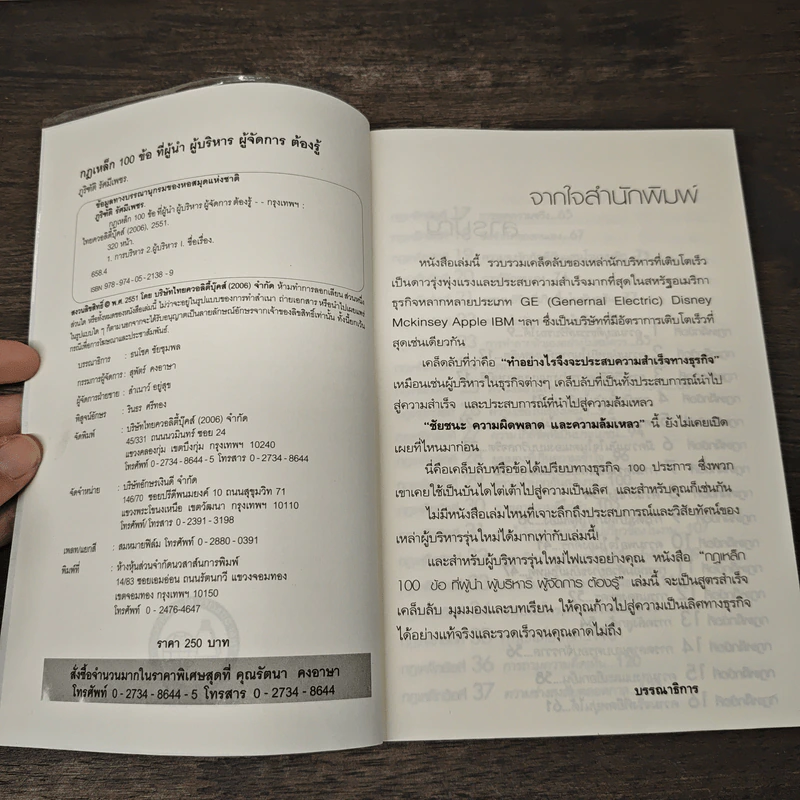 กฎเหล็ก 100 ข้อ ที่ผู้นำ ผู้บริหาร ผู้จัดการ ต้องรู้
ภูริพัติ รัศมีเพชร.
ข้อมูลทางบรรณานุกรมของหอสมุดแห่งชาติ
ภูริพัติ รัศมีเพชร.
กฎเหล็ก 100 ข้อ ที่ผู้นำ ผู้บริหาร ผู้จัดการ ต้องรู้ - - กรุงเทพฯ :
ไทยควอลิตี้บุ๊คส์ (2006), 2551.
320 หน้า.
1. การบริหาร 2.ผู้บริหาร I. ชื่อเรื่อง.
658.4
ISBN 978-974-05-2138-9
สงวนลิขสิทธิ์ © พ.ศ. 2551 โดย บริษัทไทยควอลิตี้บุ๊คส์ (2006) จำกัด ห้ามทำการลอกเลียน ส่วนหนึ่ง
ส่วนใด หรือทั้งหมดของหนังสือเล่มนี้ ไม่ว่าจะอยู่ในรูปแบบของการทำสำเนา ถ่ายเอกสาร หรือนำไปเผยแพร่
ในรูปแบบใด ๆ ก็ตาม นอกจากจะได้รับอนุญาตเป็นลายลักษณ์อักษรจากเจ้าของลิขสิทธิ์เท่านั้น ทั้งนี้ยกเว้น
กรณีเพื่อการโฆษณาและประชาสัมพันธ์.
บรรณาธิการ : ธนโชค ชัยชุมพล
กรรมการผู้จัดการ : สุพัตร์ คงอาษา
ผู้จัดการฝ่ายขาย : สำเนาว์ อยู่สุข
พิสูจน์อักษร : วินธร ศรีทอง
จัดพิมพ์ : บริษัทไทยควอลิตี้บุ๊คส์ (2006) จำกัด
45/331 ถนนนวมินทร์ ซอย 24
แขวงคลองกุ่ม เขตบึงกุ่ม กรุงเทพฯ 10240
โทรศัพท์ 0-2734-8644-5 โทรสาร 0-2734-8644
จัดจำหน่าย : บริษัทอักษรเงินดี จำกัด
146/70 ซอยปรีดีพนมยงค์ 10 ถนนสุขุมวิท 71
แขวงพระโขนงเหนือ เขตวัฒนา กรุงเทพฯ 10110
โทรศัพท์/ โทรสาร 0-2391-3198
เพลท/แยกสี : สมหมายฟิล์ม โทรศัพท์ 0-2880-0391
พิมพ์ที่ : ห้างหุ้นส่วนจำกัดนวสาส์นการพิมพ์
14/83 ซอยเอมอ่อน ถนนรัตนกวี แขวงจอมทอง
เขตจอมทอง กรุงเทพฯ 10150
โทรศัพท์ 0-2476-4647
ราคา 250 บาท
สั่งซื้อจำนวนมากในราคาพิเศษสุดที่ คุณรัตนา คงอาษา
โทรศัพท์ 0-2734-8644-5 โทรสาร 0-2734-8644
จากใจสำนักพิมพ์
หนังสือเล่มนี้ รวบรวมเคล็ดลับของเหล่านักบริหารที่เติบโตเร็ว
เป็นดาวรุ่งพุ่งแรงและประสบความสำเร็จมากที่สุดในสหรัฐอเมริกา
ธุรกิจหลากหลายประเภท GE (Genernal Electric) Disney
Mckinsey Apple IBM ฯลฯ ซึ่งเป็นบริษัทที่มีอัตราการเติบโตเร็วที่
สุดเช่นเดียวกัน
เคล็ดลับที่ว่าคือ "ทำอย่างไรจึงจะประสบความสำเร็จทางธุรกิจ"
เหมือนเช่นผู้บริหารในธุรกิจต่างๆ เคล็บลับที่เป็นทั้งประสบการณ์นำไป
สู่ความสำเร็จ และประสบการณ์ที่นำไปสู่ความล้มเหลว
"ชัยชนะ ความผิดพลาด และความล้มเหลว" นี้ ยังไม่เคยเปิด
เผยที่ไหนมาก่อน
นี่คือเคล็บลับหรือข้อได้เปรียบทางธุรกิจ 100 ประการ ซึ่งพวก
เขาเคยใช้เป็นบันไดไต่เต้าไปสู่ความเป็นเลิศ และสำหรับคุณก็เช่นกัน
ไม่มีหนังสือเล่มไหนที่เจาะลึกถึงประสบการณ์และวิสัยทัศน์ของ
เหล่าผู้บริหารรุ่นใหม่ได้มากเท่ากับเล่มนี้!
และสำหรับผู้บริหารรุ่นใหม่ไฟแรงอย่างคุณ หนังสือ "กฎเหล็ก
100 ข้อ ที่ผู้นำ ผู้บริหาร ผู้จัดการ ต้องรู้" เล่มนี้ จะเป็นสูตรสำเร็จ
เคล็บลับ มุมมองและบทเรียน ให้คุณก้าวไปสู่ความเป็นเลิศทางธุรกิจ
ได้อย่างแท้จริงและรวดเร็วจนคุณคาดไม่ถึง
บรรณาธิการ